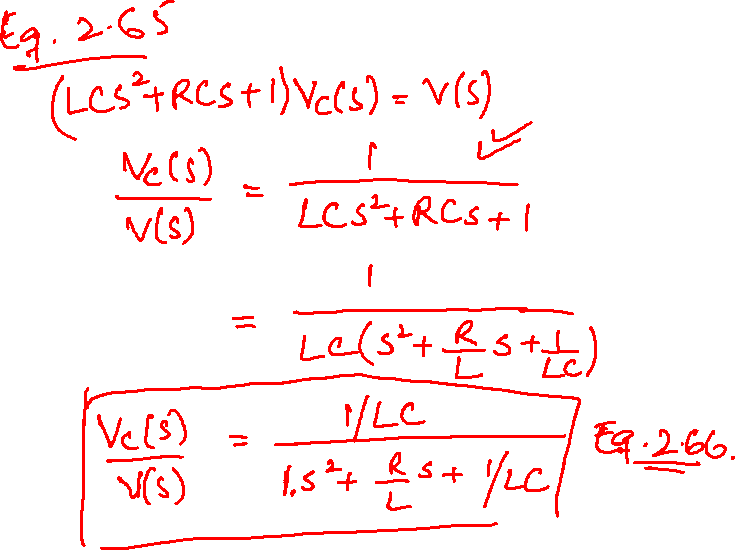 Eq. 2.65
(LCS²+RCS+1)Vc(s) = V(s)
Vc(s)/V(s) = 1/(LCS²+RCS+1) ✓
= 1/(LC(s²+ R/L s + 1/LC))
Vc(s)/V(s) = (1/LC)/(1.s²+ R/L s + 1/LC) Eq.2.66.